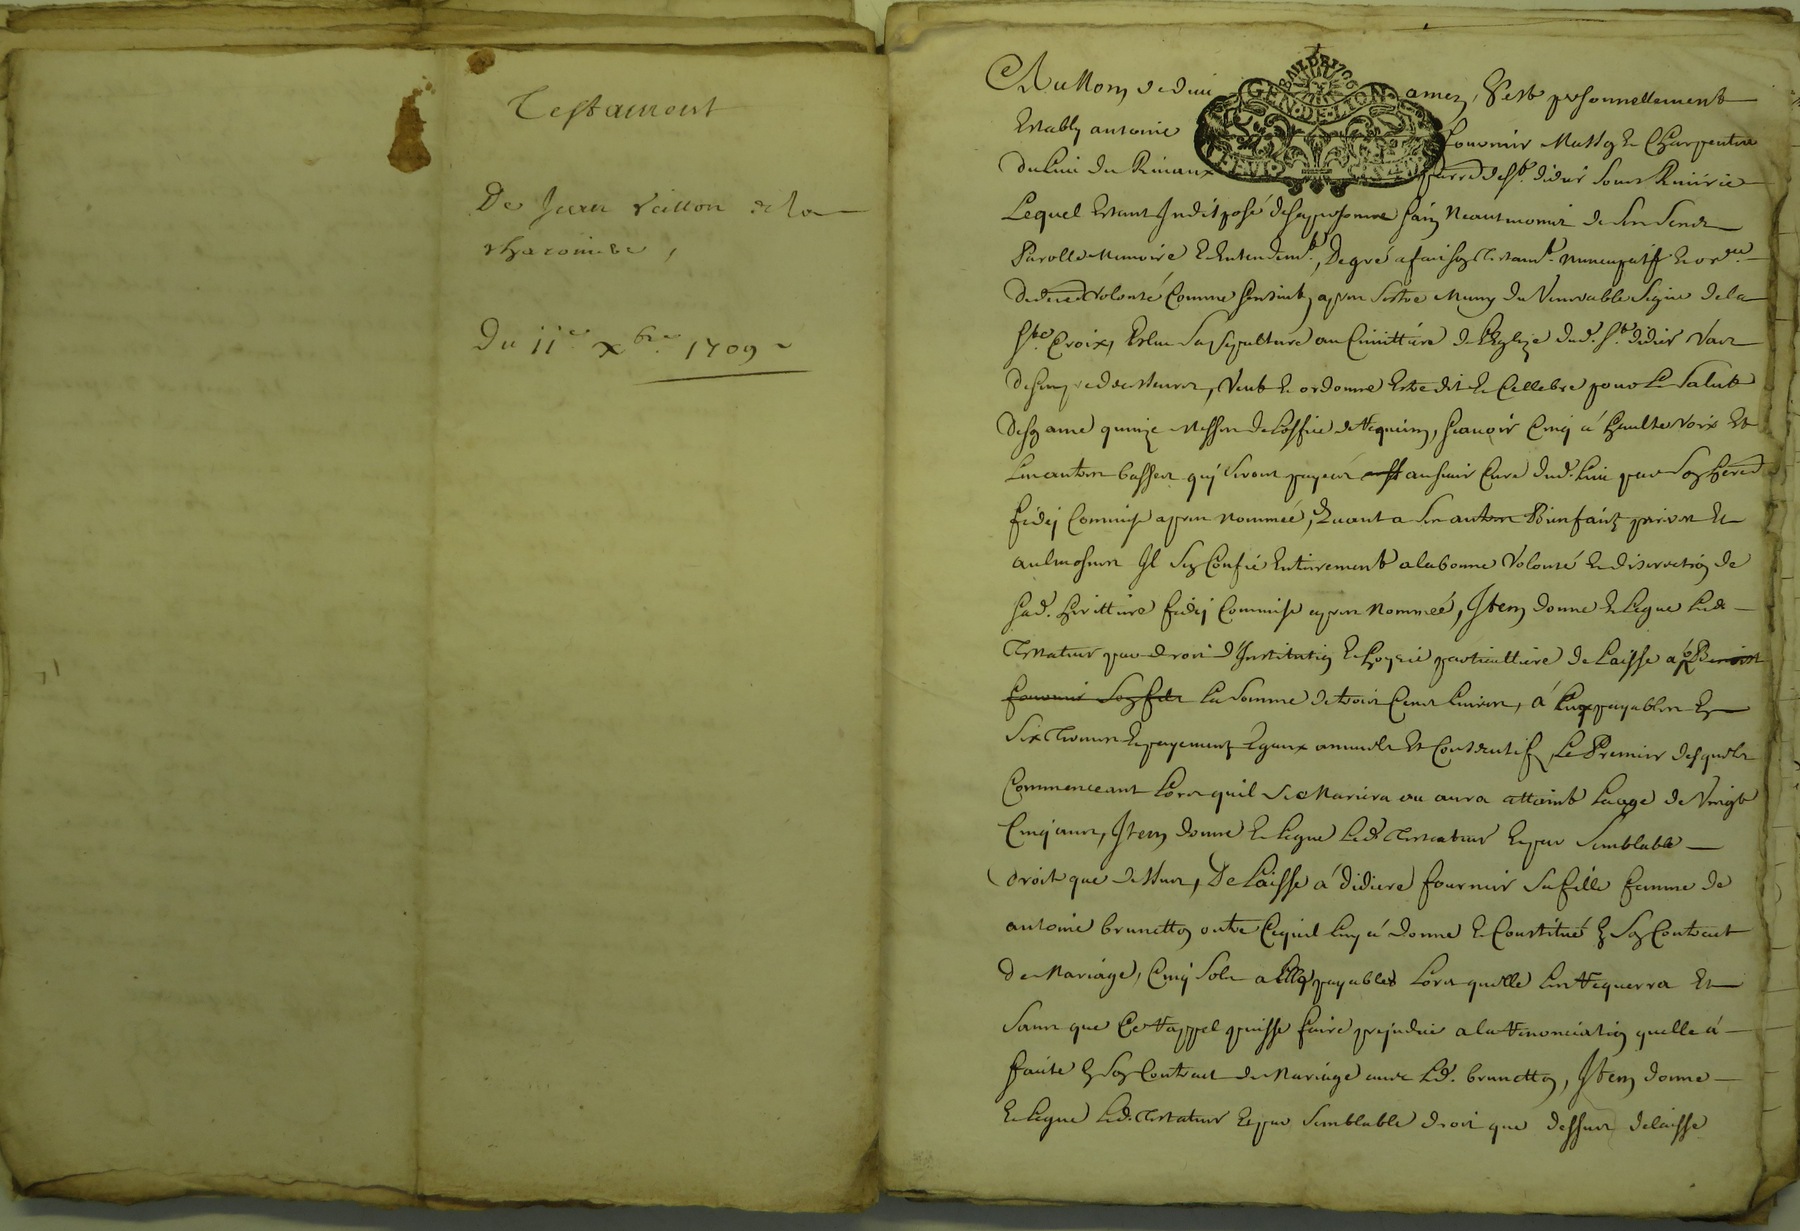 Testament
De Jean
Du 11e xbre 1709
Au Nom de dieu amen, s'est personnellement
Estably antoine fournier Me Charpentier
du lieu du parroisse de St. didier sous Riverie
Lequel Estant Indisposé de sa personne sain Neantmoins de ses Sens
Parolle Memoire & Entendemt., De gré a fait son Testamt. nuncupatif &
derniere volonté Comme sensuit, apres sestre Muny du Venerable Signe de la
Ste. Croix, Eslu Sa sepulture au Cimittiere de l'Eglize dud. St. didier
Veut & ordonne Estre dit & Cellebré pour Le Salut
de son ame quinze Messes de Loffice de requiem, scavoir Cinq á haulte voix Et
Les autres basses qui Seront payees au sieur Curé dud. lieu par son herede
fideij Commise apres nommeé, Quant a Ses autres Bienfaits prieres Et
aulmosnes Il Sen Confie Entierement a la bonne volonté & discretion de
sad. heritiere fideij Commise apres Nommeé, Item donne & Legue Led.
Testateur par droit d'Institution & hoyrie particulliere delaisse a Benoist
fournier son fils La Somme de trois Cens Livres, á Luy payables En
Six Termes & payements Egaux annuels Et Consecutifs, Le Premier desquels
Commenceant Lors quil Se Mariera ou aura attaint Laage de Vingt
Cinq ans, Item donne & Legue Led. Testateur & par Semblable
droit que dessus, De Laisse á didiere fournier Sa fille femme de
antoine brunetton outre Cequil Luy á donné & Constitué En Son Contract
de Mariage, Cinq Sols a Elle payables Lors quelle Les requerra Et
Sans que Ce rappel puisse faire prejudice a la renonciation quelle á
faite En Son Contract de Mariage avec Led. brunetton, Item donne
& Legue Led. Testateur & par Semblable droit que dessus delaisse
GEN. DE LION